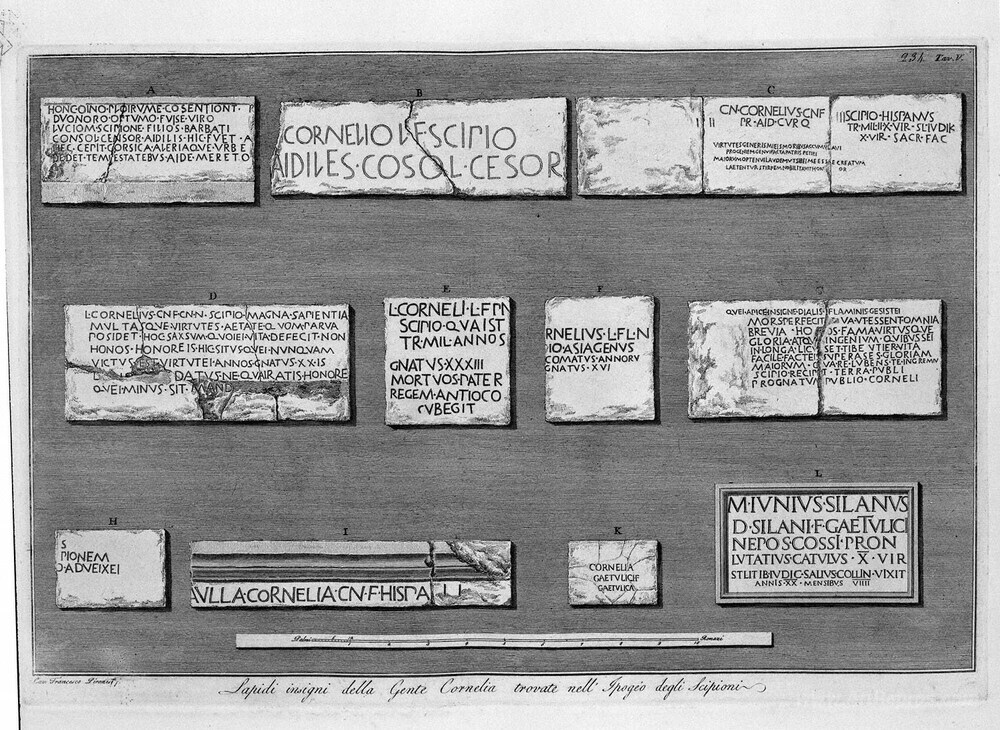 234. Tav. V.
A
HONC·OINO·PLOIRVME·COSENTIONT· R
DVONORO·OPTVMO·FVISE·VIRO
LVCIOM·SCIPIONE·FILIOS·BARBATI
CONSOL·CENSOR·AIDILIS·HIC·FVET·A
HEC·CEPIT·CORSICA·ALERIAQVE·VRBE
DEDET·TEMPESTATEBVS·AIDE·MERETO
B
CORNELIO L·F SCIPIO
AIDILES·COSOL·CESOR
C
CN·CORNELIVS·CN·F
PR·AID·CVR·Q
VIRTVTES·GENERIS·MIEIS·MORIBVS·ACCVMVLAVI
PROGENIEM·GENVI·FACTA·PATRIS·PETIEI
MAIORVM·OPTENVI·LAVDEM·VT·SIBEI·ME·ESSE·CREATVM
LAETENTVR·STIRPEM·NOBILITAVIT·HONOR
SCIPIO·HISPANVS
TR·MIL·II·X·VIR·SL·IVDIK
X·VIR·SACR·FAC
D
L·CORNELIVS·CN·F·CN·N·SCIPIO·MAGNA·SAPIENTIA
MVLTASQVE·VIRTVTES·AETATE·QVOM·PARVA
POSIDET·HOC·SAXSVM·QVOIEI·VITA·DEFECIT·NON
HONOS·HONORE·IS·HIC·SITVS·QVEI·NVNQVAM
VICTVS·EST·VIRTVTEI·ANNOS·GNATVS·XX·IS
L DATVS·NE·QVAIRATIS·HONORE
QVEI·MINVS·SIT·MAND
E
L·CORNELI·L·F·P·N
SCIPIO·QVAIST
TR·MIL·ANNOS
GNATVS·XXXIII
MORTVOS·PATER
REGEM·ANTIOCO
SVBEGIT
F
RNELIVS·L·F·L·N
IO·ASIAGENVS
COMATVS·ANNORV
GNATVS·XVI
G
QVEI·APICE·INSIGNE·DIALIS·FLAMINIS·GESISTEI
MORS·PERFECIT VA·VT·ESSENT·OMNIA
BREVIA·HONOS·FAMA·VIRTVSQVE
GLORIA·ATQVE INGENIVM·QVIBVS·SEI
IN·LONGA·LICV SET·TIBE·VTIER·VITA
FACILE·FACTEI SVPERASES·GLORIAM
MAIORVM·QVARE·LVBENS·TE·IN·GREMIV
SCIPIO·RECIPIT·TERRA·PVBLI
PROGNATVM PVBLIO·CORNELI
H
S
PIONEM
O·ADVEIXEI
I
AVLLA·CORNELIA·CN·F·HISPALLI
K
CORNELIA
GAETVLICI·F
GAETVLICA
L
M·IVNIVS·SILANVS
D·SILANI·F·GAETVLICI
NEPOS·COSSI·PRON
LVTATIVS·CATVLVS·X·VIR
STLITIB·IVDIC·SALIVS·COLLIN·VIXIT
ANNIS·XX·MENSIBVS VIIII
Palmi 1 2 3 4 5 6 7 8 9 10 Romani
Cav. Francesco Piranesi f.
Lapidi insigni della Gente Cornelia trovate nell' Ipogèo degli Scipioni